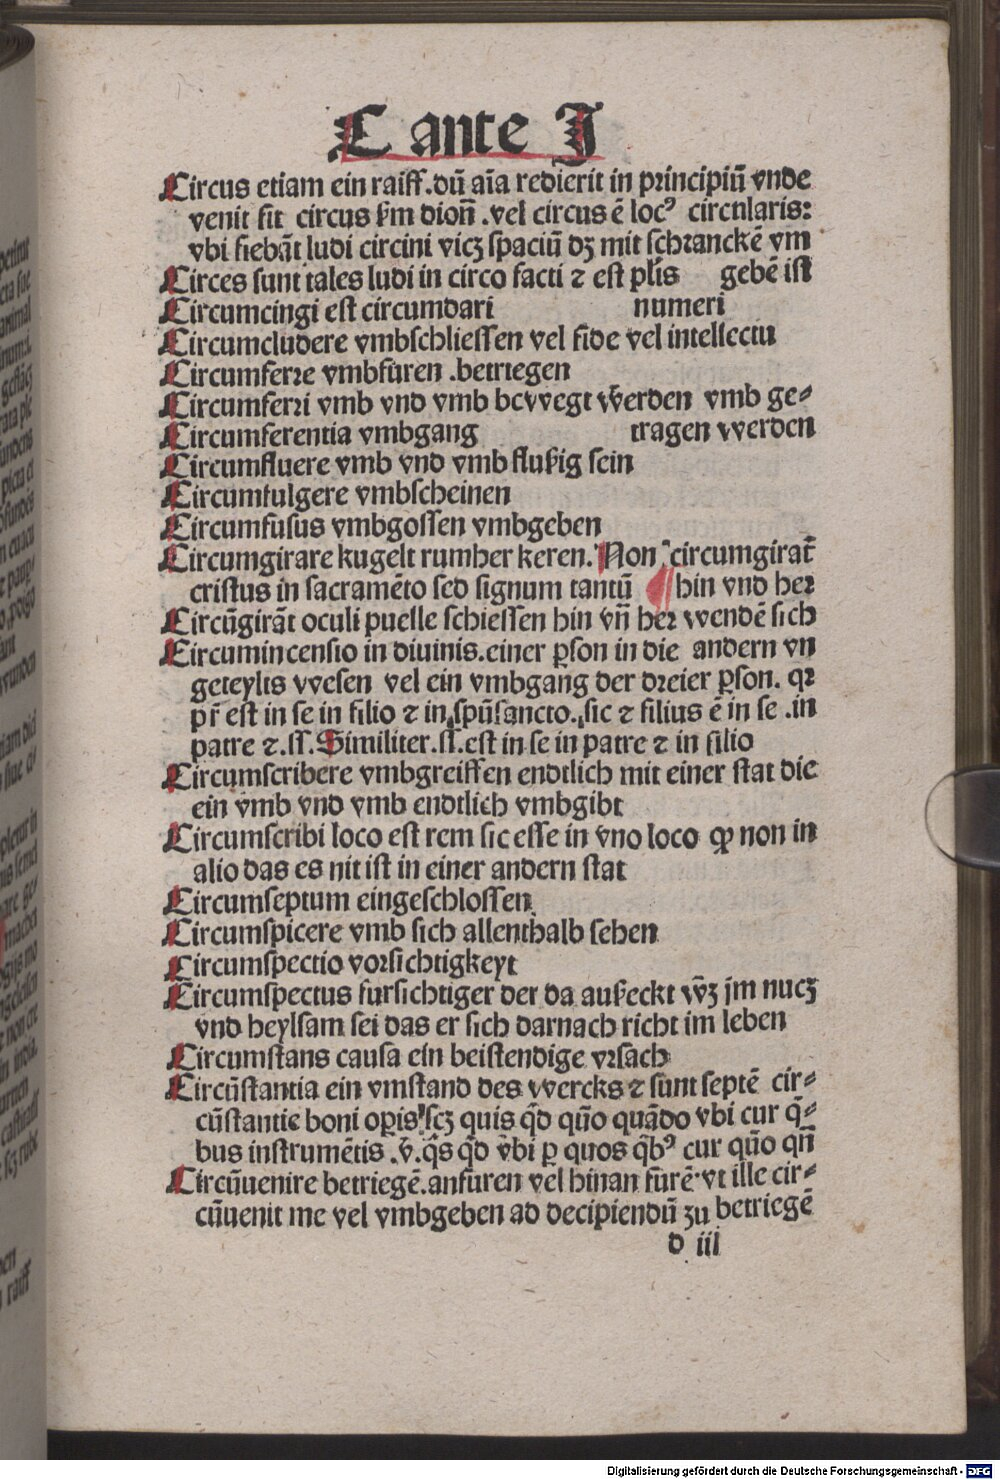 C ante J
Circus etiam ein raiff.dū aīa redierit in principiū vnde
venit fit circus ẜm dioñ .vel circus ē locꝰ circularis:
vbi fiebāt ludi circini vicꝫ spaciū dꝫ mit schranckē vm
Circes sunt tales ludi in circo facti ⁊ est pľis gebē ist
Circumcingi est circumdari numeri
Circumcludere vmbschliessen vel fide vel intellectu
Circumferre vmbfüren .betriegen
Circumferri vmb vnd vmb bewegt werden vmb ge⸗
Circumferentia vmbgang tragen werden
Circumfluere vmb vnd vmb flußig sein
Circumfulgere vmbscheinen
Circumfusus vmbgossen vmbgeben
Circumgirare kugelt rumher keren. Non circumgirat̄
cristus in sacramēto sed signum tantū ¶ hin vnd her
Circūgirāt oculi puelle schiessen hin vn̄ her wendē sich
Circumincensio in diuinis.einer ꝑson in die andern vn
geteylts wesen vel ein vmbgang der dreier ꝑson. qꝛ
pr̄ est in se in filio ⁊ in spūsancto. sic ⁊ filius ē in se .in
patre ⁊.ss. Similiter.ss.est in se in patre ⁊ in filio
Circumscribere vmbgreiffen endtlich mit einer stat die
ein vmb vnd vmb endtlich vmbgibt
Circumscribi loco est rem sic esse in vno loco ꝙ non in
alio das es nit ist in einer andern stat
Circumseptum eingeschlossen
Circumspicere vmb sich allenthalb sehen
Circumspectio vorsichtigkeyt
Circumspectus fursichtiger der da außeckt wꝫ jm nucꝫ
vnd heylsam sei das er sich darnach richt im leben
Circumstans causa ein beistendige vrsach
Circūstantia ein vmstand des wercks ⁊ sunt septē cir⸗
cūstantie boni oꝑis scꝫ quis qd̄ quō quādo vbi cur q̄⸗
bus instrumētis .v̄. q̄s qd̄ vbi ꝑ quos qb̄ꝰ cur quō qn̄
Circūuenire betriegē.anfüren vel hinan fürē vt ille cir⸗
cūuenit me vel vmbgeben ad decipiendū zu betriegē
d iii
Digitalisierung gefördert durch die Deutsche Forschungsgemeinschaft - DFG